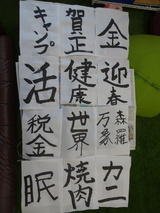 キャンプ
賀正
金
活
健康
迎春
税金
世界
森羅
万象
眠
焼肉
カニ